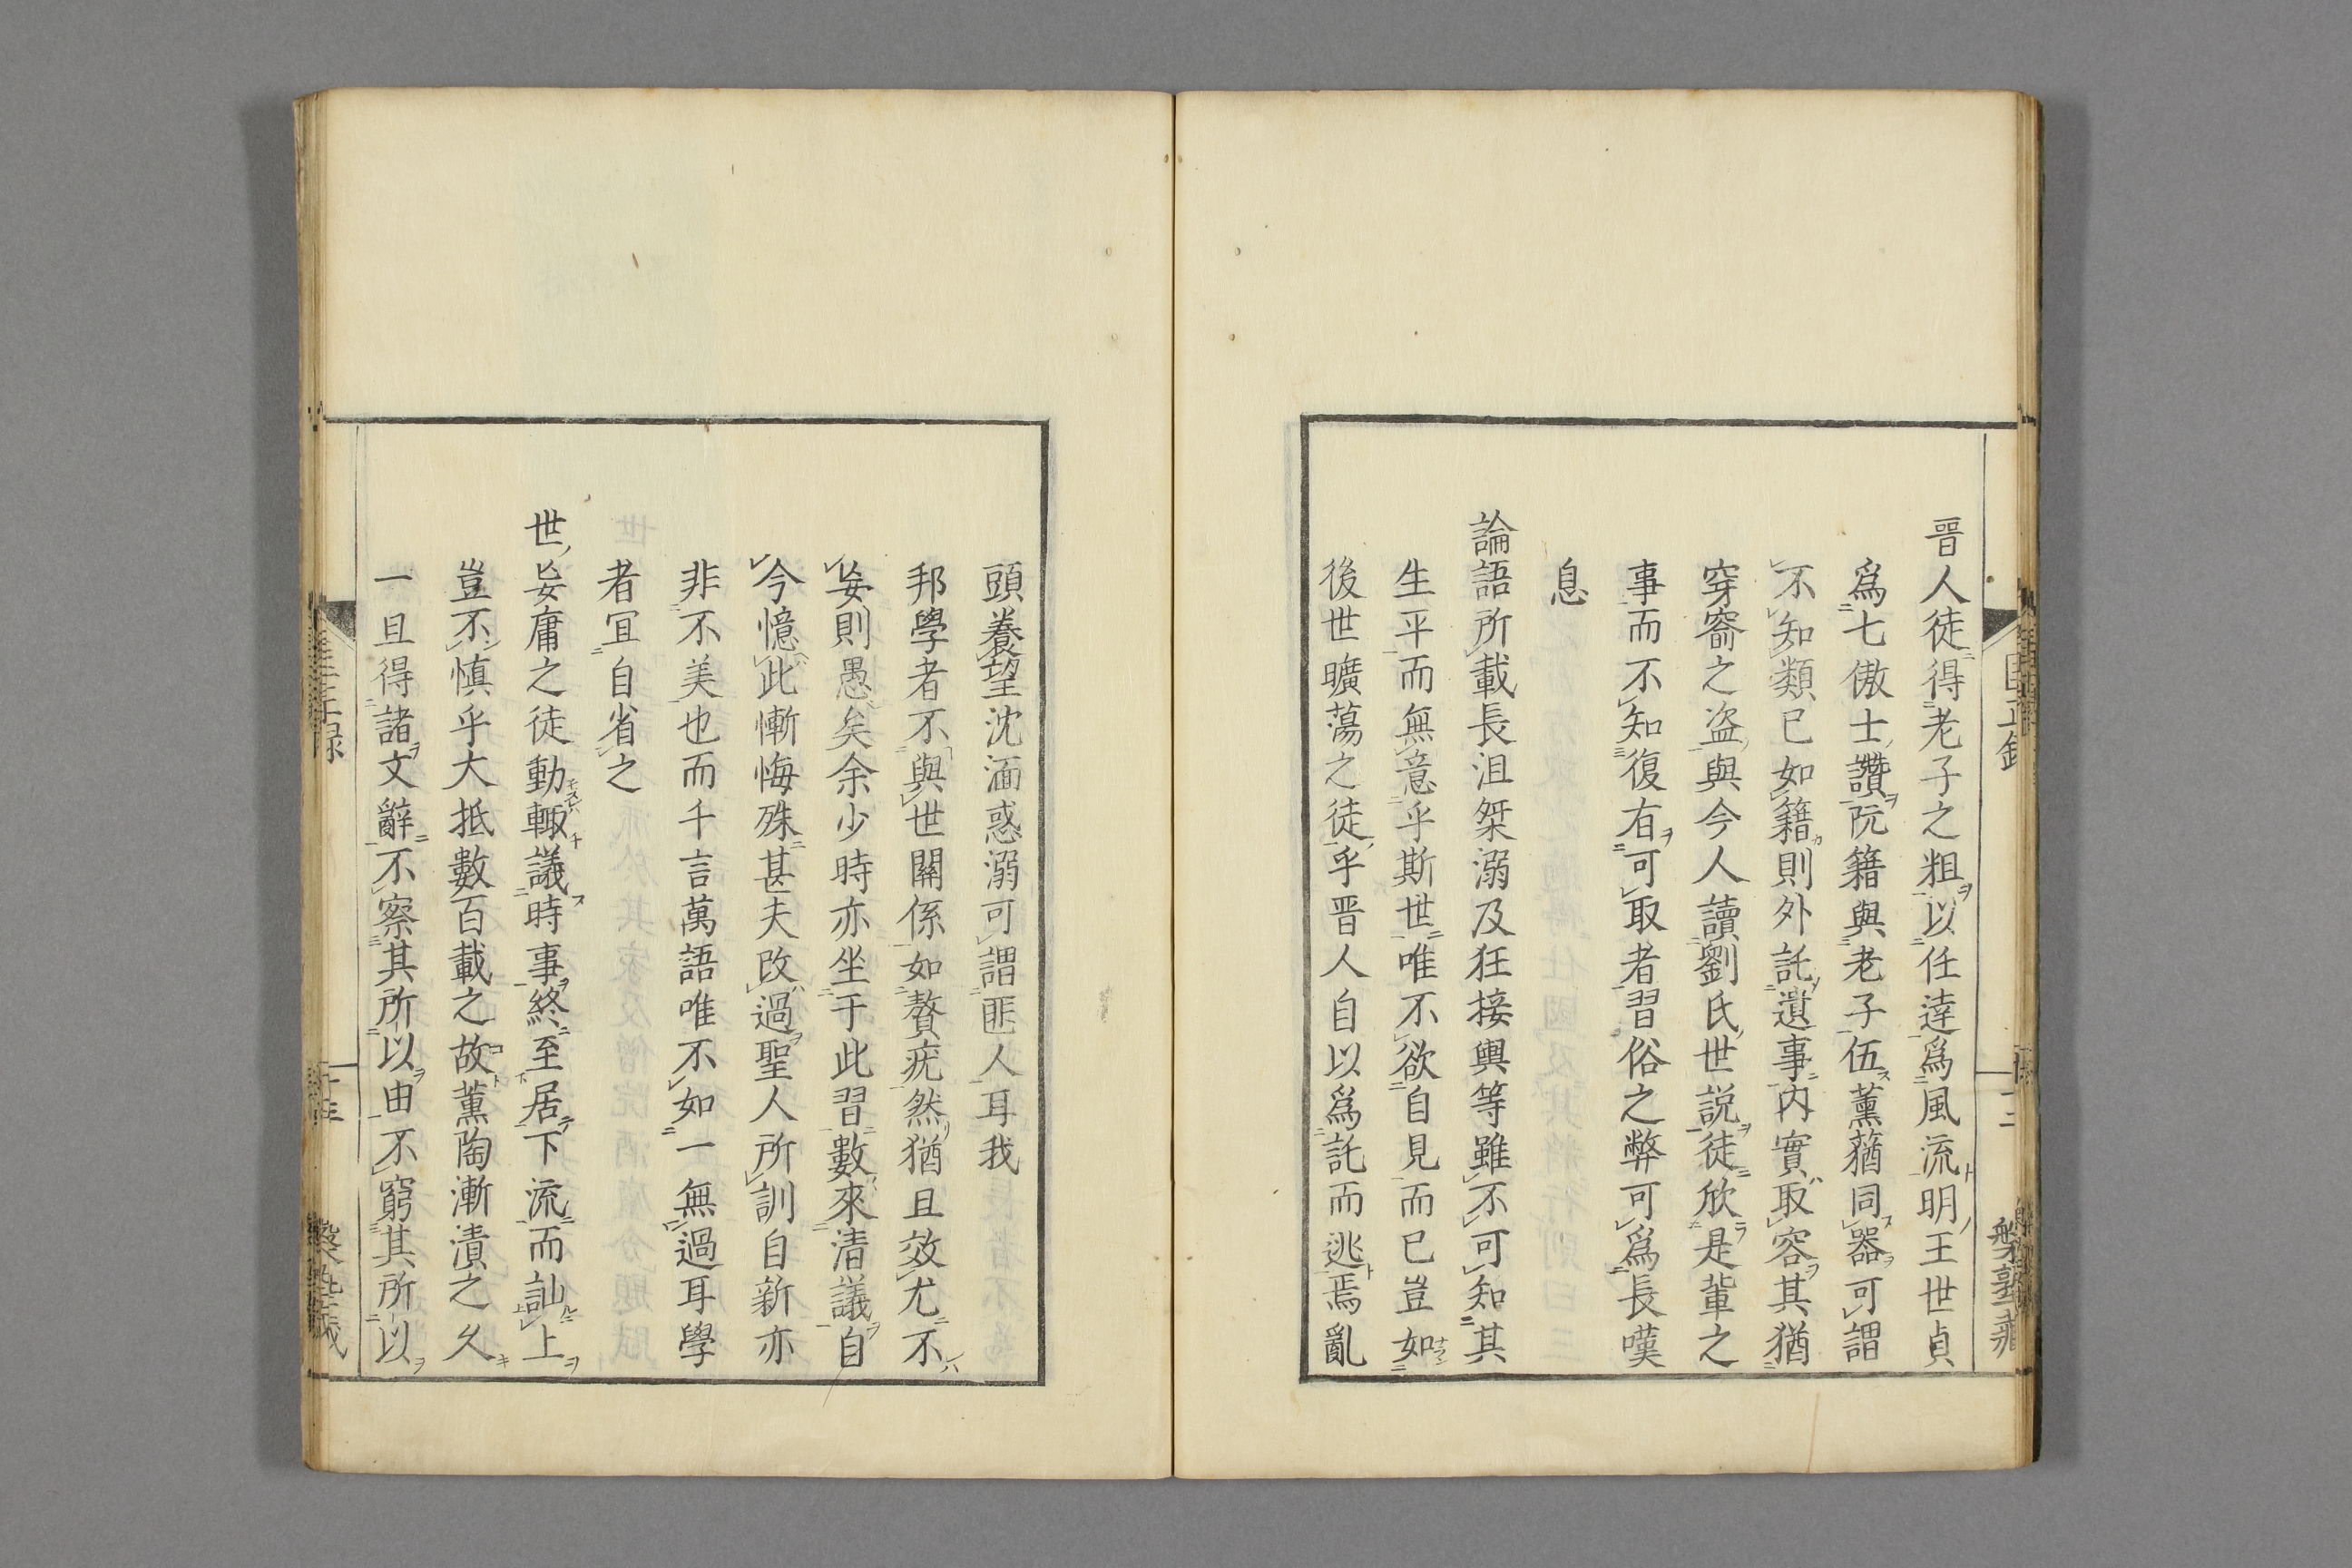 晋人徒得老子之粗以任達爲風流明王世貞
爲七傲士讚阮籍與老子伍薰蕕同器可謂
不知類已如籍則外託遺事内實取容其猶
穿窬之盗與今人讀劉氏世説徒欣是輩之
事而不知復有可取者習俗之弊可爲長嘆
息
論語所載長沮桀溺及狂接輿等雖不可知其
生平而無意乎斯世唯不欲自見而已豈如
後世曠蕩之徒乎晋人自以爲託而逃焉亂
頭養望沈湎惑溺可謂匪人耳我
邦學者不與世關係如贅疣然猶且效尤不
妄則愚矣余少時亦坐于此習數來清議自
今憶此慚悔殊甚夫改過聖人所訓自新亦
非不美也而千言萬語唯不如一無過耳學
者宜自省之
世妄庸之徒動輙議時事終至居下流而訕上
豈不慎乎大抵數百載之故薫陶漸漬之久
一旦得諸文辭不察其所以由不窮其所以